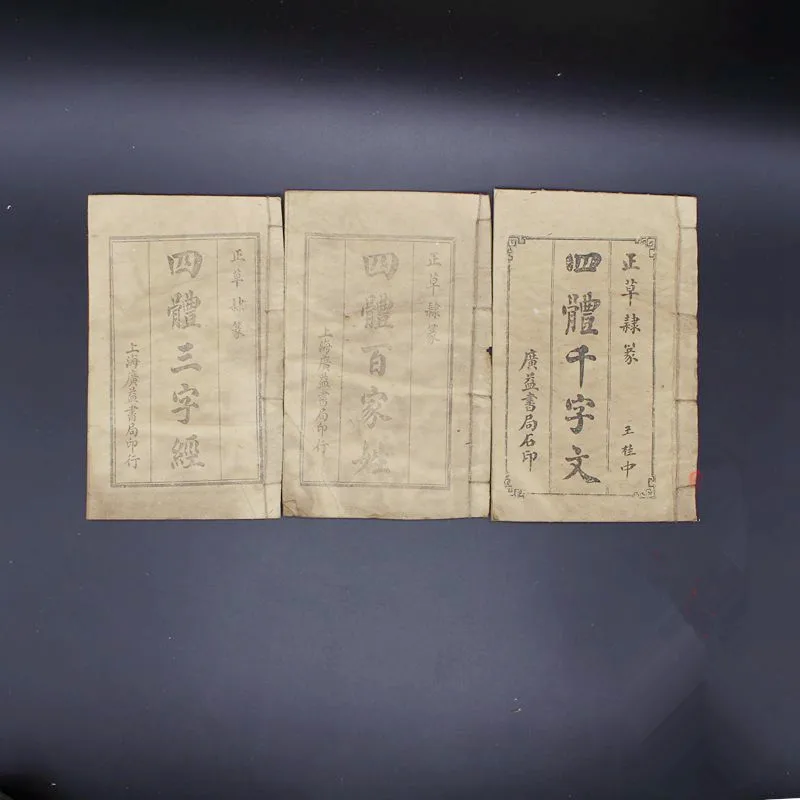 正草隸篆
四體三字經
上海廣益書局印行
正草隸篆
四體百家姓
上海廣益書局印行
正草隸篆
王桂中
四體千字文
廣益書局石印